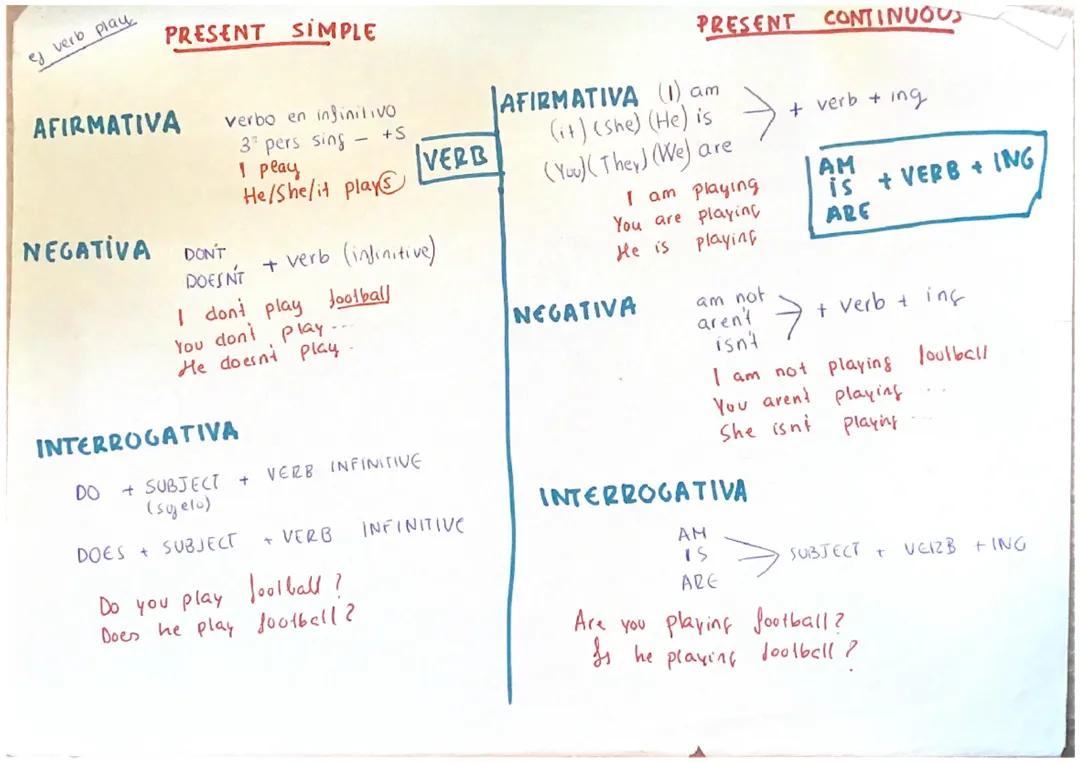 ej verb play
PRESENT SIMPLE
AFIRMATIVA
verbo en infinitivo
3ª pers sing - +S
I play
He/She/it plays
VERB
NEGATIVA
DON'T
DOESN'T
+ verb (infinitive)
I don't play football
You don't play ...
He doesn't play.
INTERROGATIVA
DO + SUBJECT + VERB INFINITIVE
(sujeto)
DOES + SUBJECT + VERB INFINITIVE
Do you play football?
Does he play football?
PRESENT CONTINUOUS
AFIRMATIVA (I) am
(it) (she) (He) is
(You) (They) (We) are
+ verb + ing
AM
IS + VERB + ING
ARE
I am playing
You are playing
He is playing
NEGATIVA
am not
aren't
isn't
+ verb + ing
I am not playing football
You aren't playing ...
She isn't playing ...
INTERROGATIVA
AM
IS
ARE
SUBJECT + VERB + ING
Are you playing football?
Is he playing football?